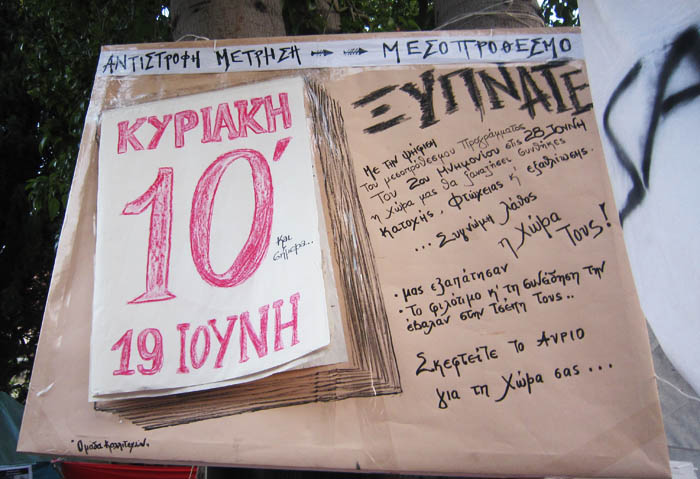 ΑΝΤΙΣΤΡΟΦΗ ΜΕΤΡΗΣΗ ΜΕΣΟΠΡΟΘΕΣΜΟ
ΚΥΡΙΑΚΗ
10΄
και σήμερα..
19 ΙΟΥΝΗ
ΞΥΠΝΑΤΕ
Με την ψήφιση
Του μεσοπρόθεσμου Προγράμματος
Του 2ου Μνημονίου στις 28 ΙΟΥΝΗ
η Χώρα μας θα ξαναζήσει συνθήκες
Κατοχής, φτώχειας κ' εξαθλίωσης.
... Συγνώμη λάθος
η Χώρα
Τους!
• μας εξαπάτησαν
• Το φιλότιμο κ' τη συνείδηση την
έβαλαν στην Τσέπη Τους..
Σκεφτείτε το Αυριο
για τη Χώρα σας...
Ομαδα